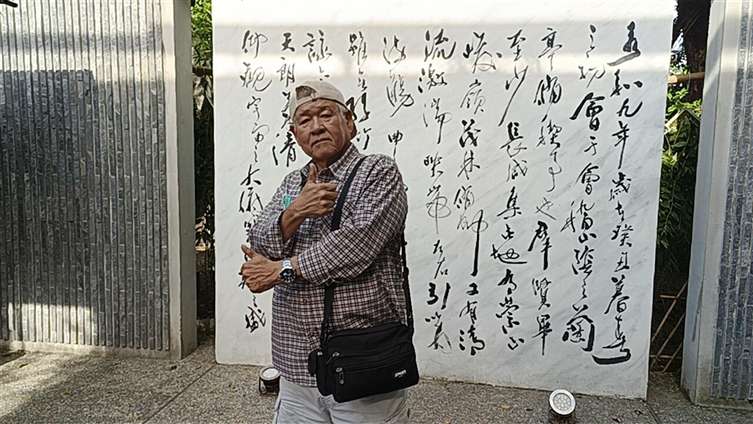 永和九年歲在癸丑暮春
之初會于會稽山陰之蘭
亭脩禊事也羣賢畢
至少長咸集此地有崇山
峻嶺茂林脩竹又有清
流激湍映帶左右引以為
流觴曲
雖無絲竹
詠亦
天朗氣清
仰觀宇宙之大俯察之盛